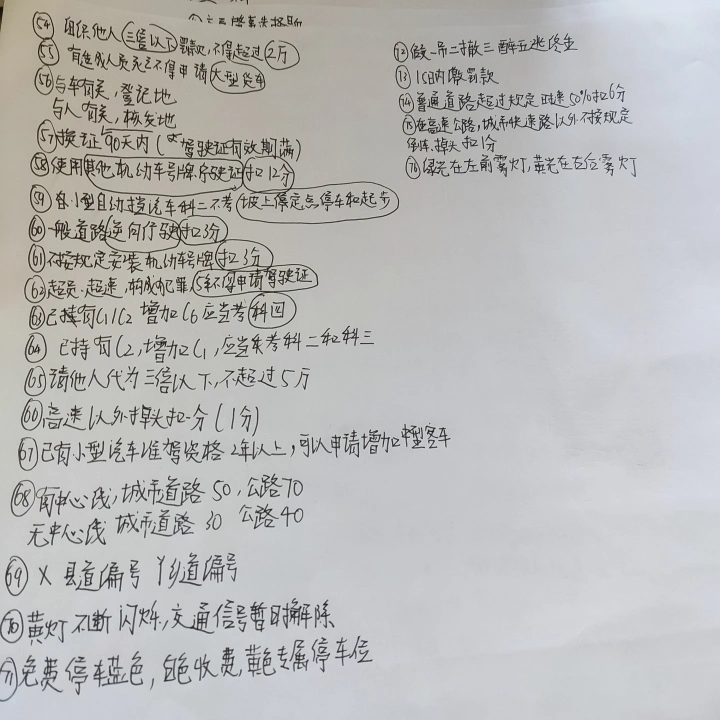 54 组织他人三倍以下罚款,不得超过2万
55 有造成人员死亡不得申请大型货车
56 与车有关,登记地
与人有关,核发地
57 换证 90天内(驾驶证有效期满)
58 使用其他机动车号牌、行驶证扣12分
59 自小型自动挡汽车科二不考坡上停定点停车和起步
60 一般道路逆向行驶扣3分
61 不按规定安装机动车号牌扣3分
62 超员、超速,构成犯罪5年不得申请驾驶证
63 已持有C1/C2 增加C6应当考科四
64 已持有C2,增加C1,应当考科二和科三
65 请他人代为三倍以下,不超过5万
66 高速以外掉头扣一分(1分)
67 已有小型汽车准驾资格2年以上,可以申请增加中型客车
68 有中心线,城市道路50,公路70
无中心线 城市道路30 公路40
69 X县道编号 Y乡道编号
70 黄灯不断闪烁,交通信号暂时解除
71 免费停车蓝色,白色收费,黄色专属停车位
72 假一吊二撤三醉五逃终生
73 15日内缴罚款
74 普通道路超过规定时速50%扣6分
75 在高速公路,城市快速路以外不按规定
倒车、掉头扣1分
76 绿光在左前雾灯,黄光在右后雾灯